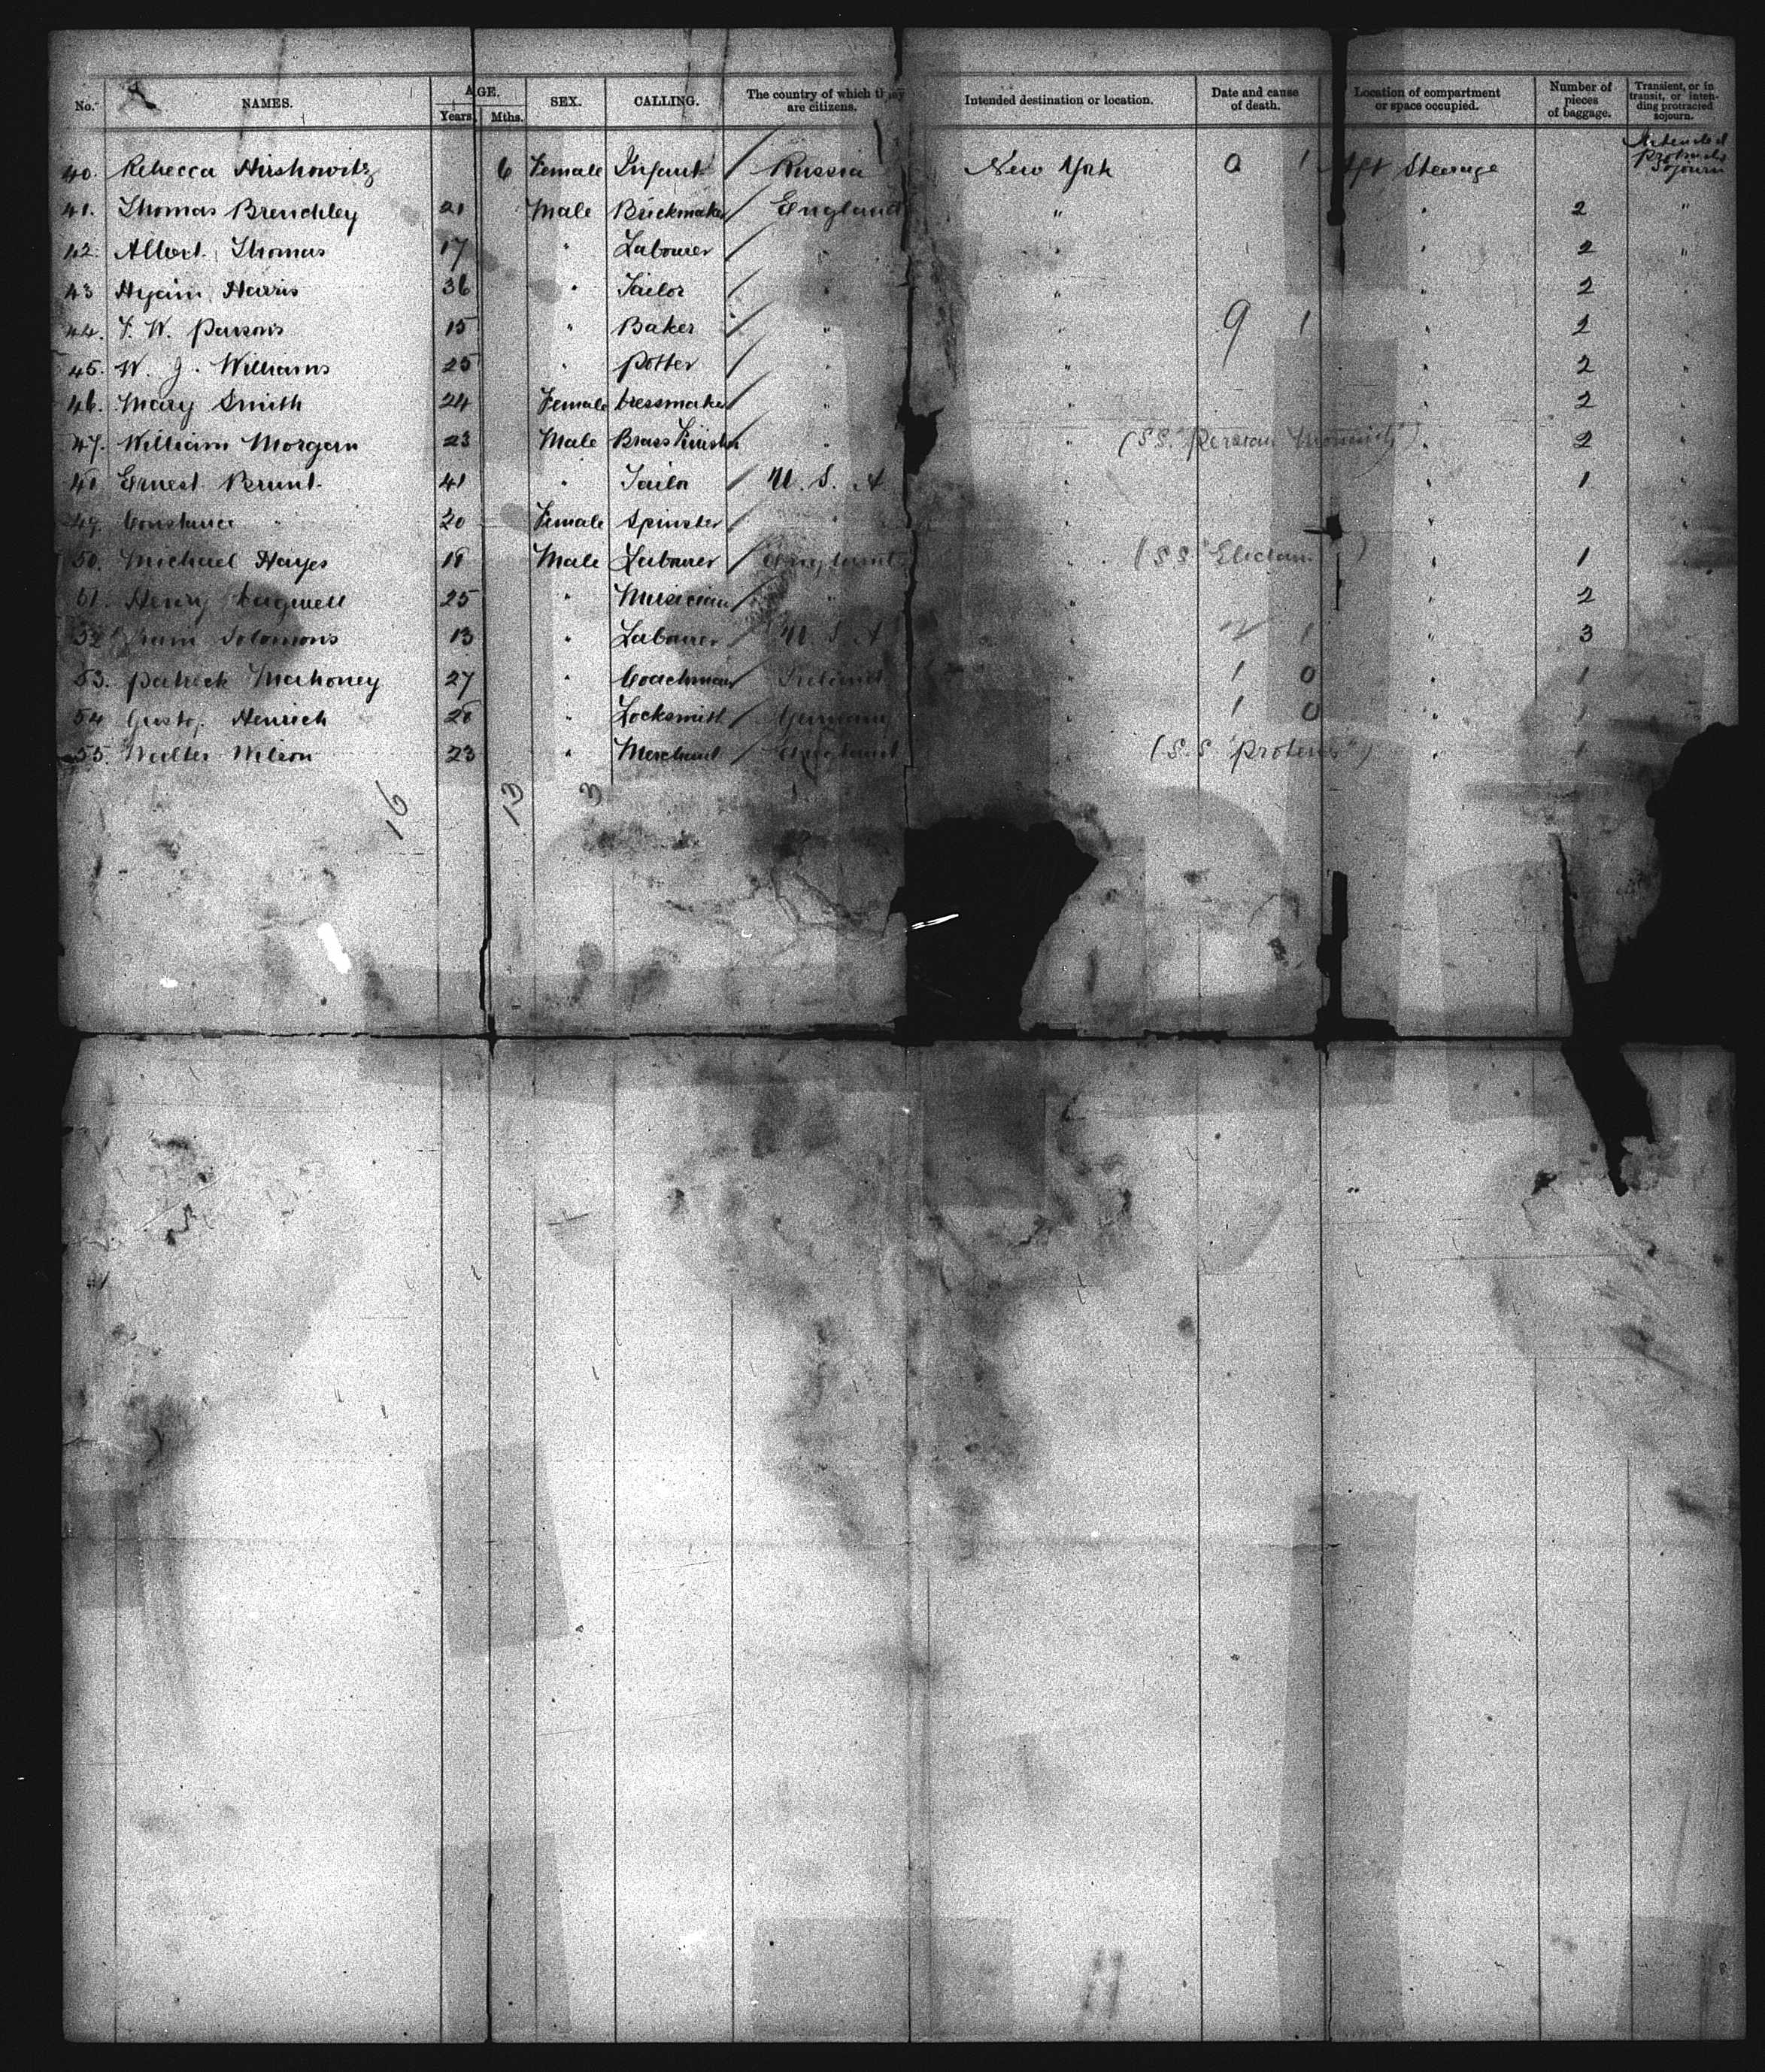 No. NAMES. AGE. SEX. CALLING. The country of which they are citizens. Intended destination or location. Date and cause of death. Location of compartment or space occupied. Number of pieces of baggage. Transient, or in transit, or intending protracted sojourn.
Years. Mths.
40. Rebecca Hirshowitz 6 Female Infant Russia New York 0 1 Aft Steerage Intended Protracted Sojourn
41. Thomas Brenchley 21 Male Brickmaker England " " 2 "
42. Albert Thomas 17 " Labourer " " " 2 "
43 Hyam Harris 36 " Tailor " " " 2 "
44. F. W. Parsons 15 " Baker " " 9 1 " 2 "
45. W. J. Williams 25 " Potter " " " 2 "
46. Mary Smith 24 Female Dressmaker " " " 2 "
47. William Morgan 23 Male Brass Finisher " " (S.S. "Persian Monarch") " 2 "
48 Ernest Brunt 41 " Tailor U. S. A " " 1 "
49. Constance " 20 Female Spinster " " " "
50. Michael Hayes 18 Male Labourer England " (S.S. ) " 1 "
51. Henry Bagwell 25 " Musician " " " 2
52 Solomons 13 " Labourer U S A " 1 " 3
53. Patrick Mahoney 27 " Coachman Ireland " 1 0 " 1
54 Gustj. Henrich 28 " Locksmith Germany " 1 0 " 1
55. Walter Wilson 23 " Merchant England " (S.S "Proteus") " 1
16 13 3